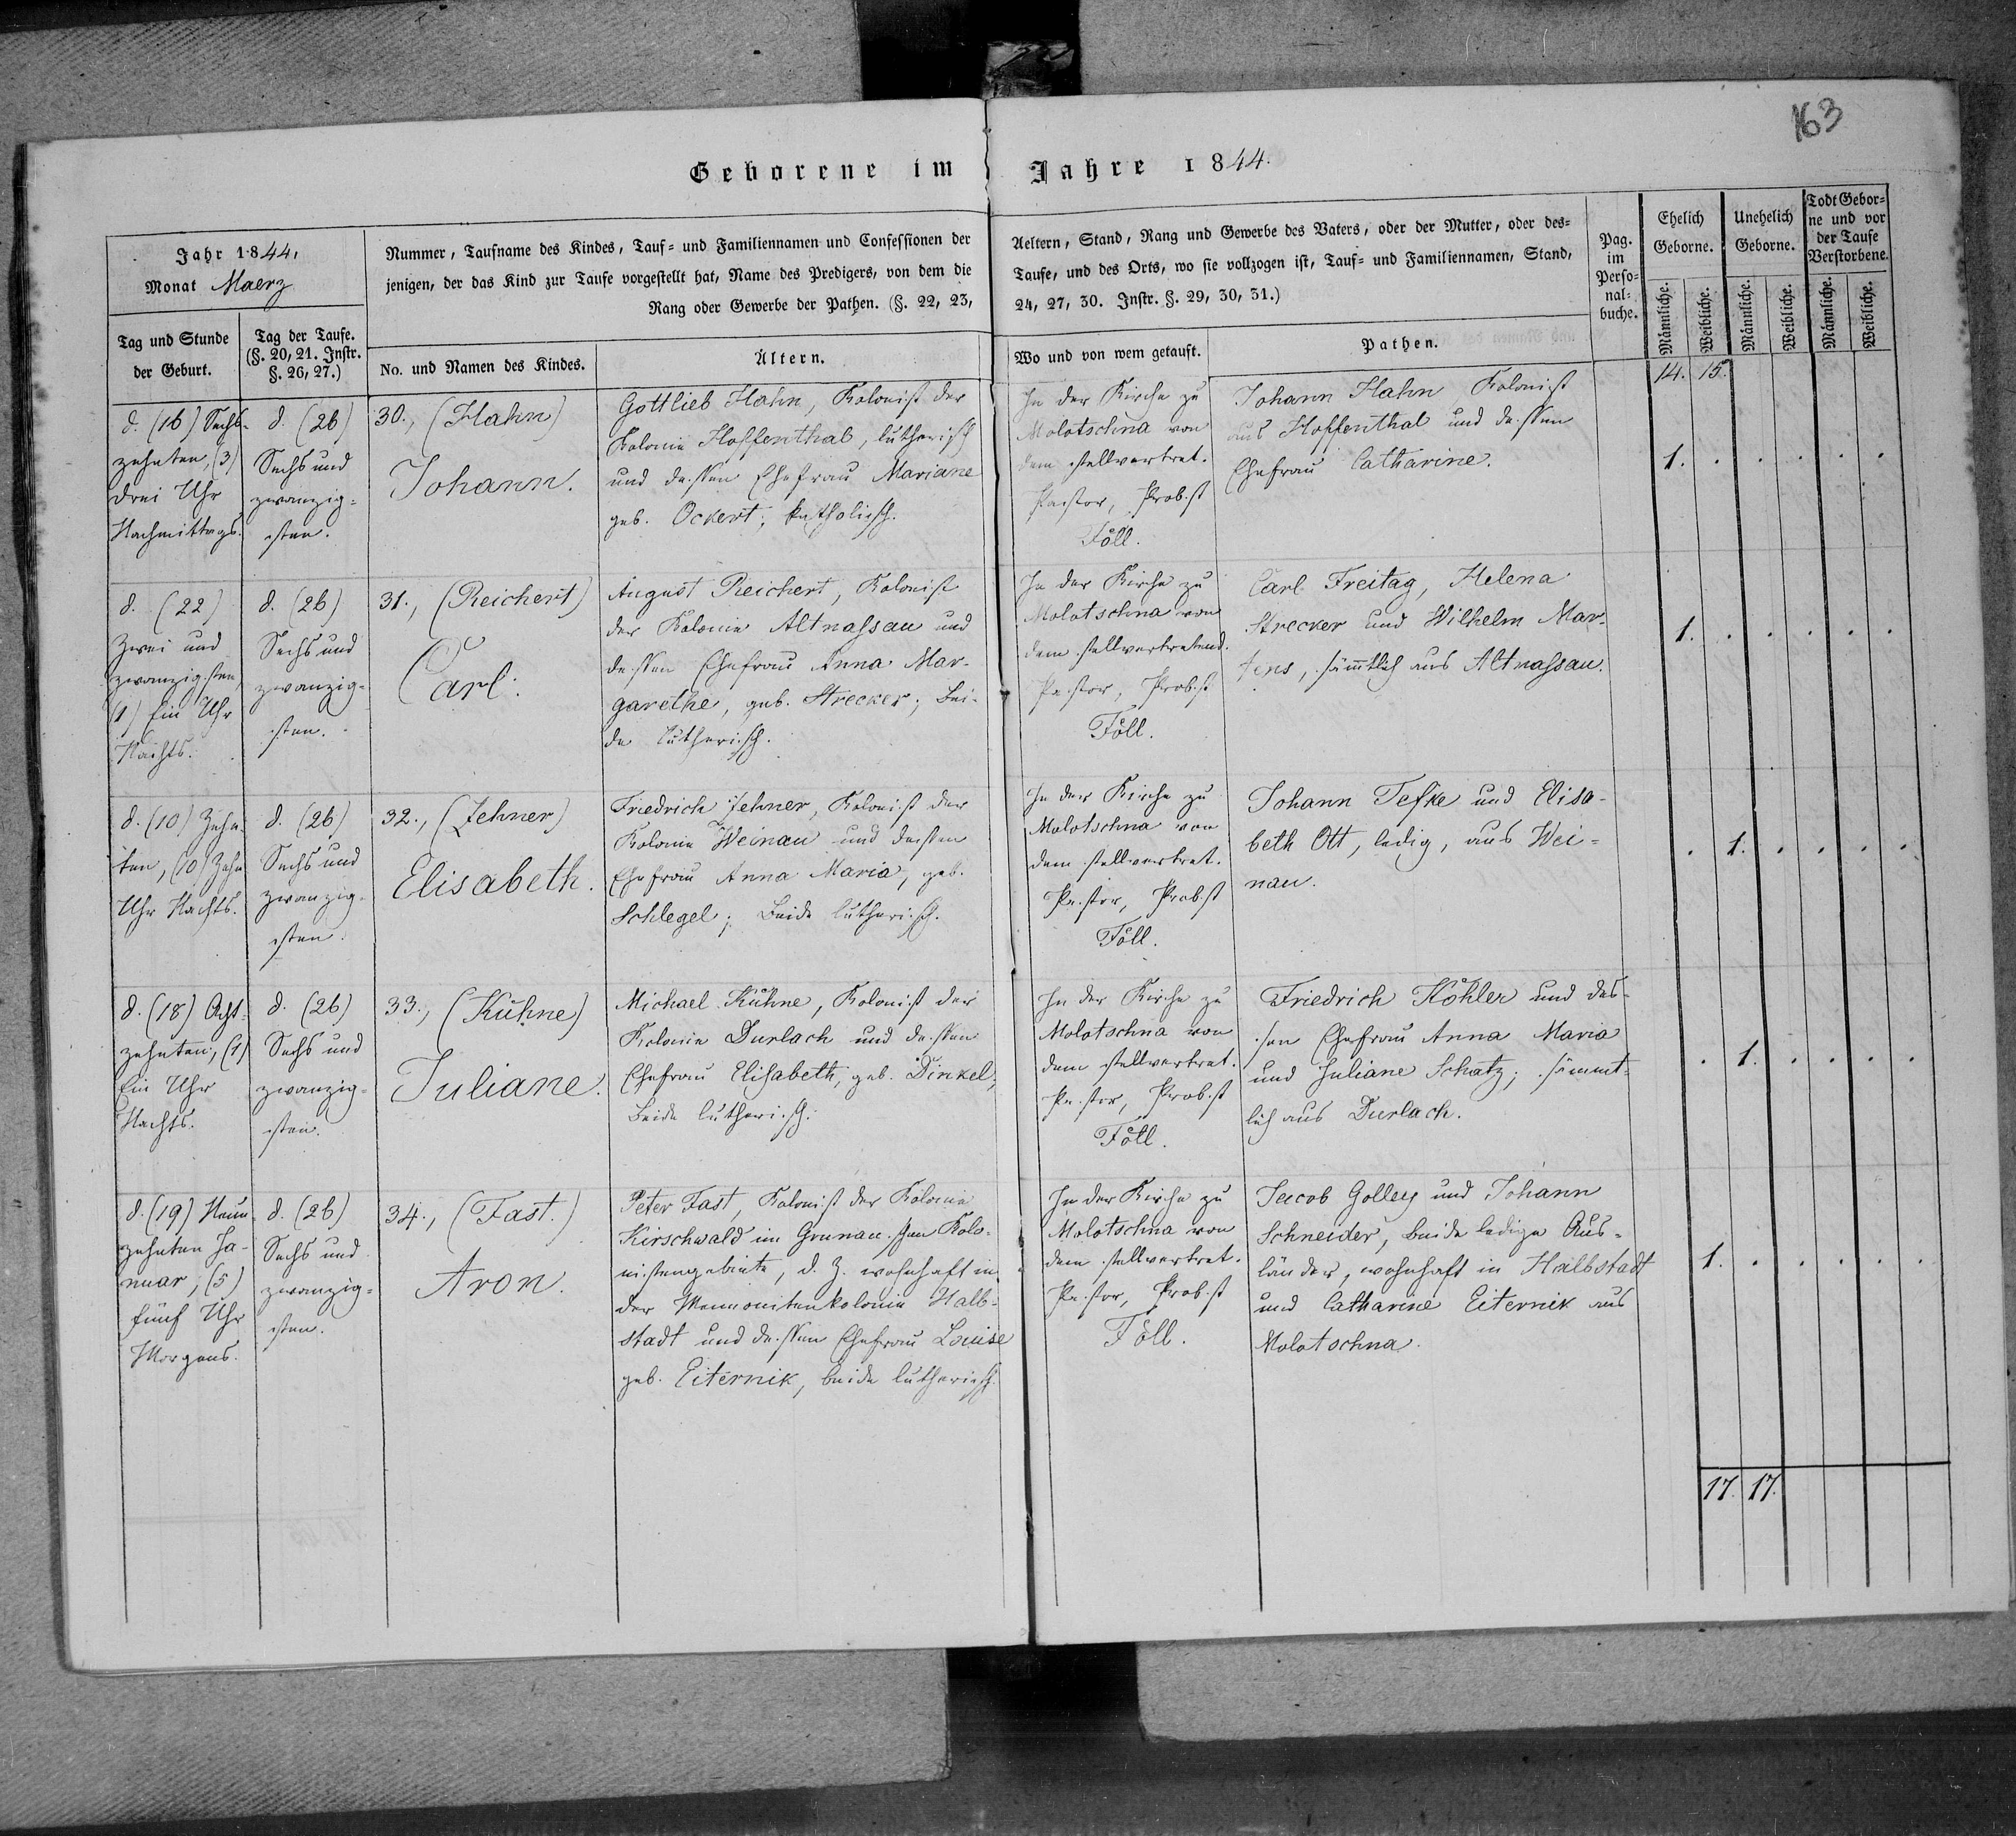 163
Geborene im Jahre 1844.
Jahr 1844,
Monat Maerz
Nummer, Taufname des Kindes, Tauf- und Familiennamen und Confessionen der
jenigen, der das Kind zur Taufe vorgestellt hat, Name des Predigers, von dem die
Rang oder Gewerbe der Pathen. (§. 22, 23,
Aeltern, Stand, Rang und Gewerbe des Vaters, oder der Mutter, oder des-
Taufe, und des Orts, wo sie vollzogen ist, Tauf- und Familiennamen, Stand,
24, 27, 30. Instr. §. 29, 30, 31.)
Pag.
im
Perso-
nal-
buche.
Ehelich
Geborne.
Unehelich
Geborne.
Todt Gebor-
ne und vor
der Taufe
Verstorbene.
Tag und Stunde
der Geburt.
Tag der Taufe.
(§. 20, 21. Instr.
§. 26, 27.)
No. und Namen des Kindes.
Ältern.
Wo und von wem getauft.
Pathen.
Männliche.
Weibliche.
Männliche.
Weibliche.
Männliche.
Weibliche.
14. 15.
d. (16) Sechs-
zehnten, (3)
drei Uhr
Nachmittags.
d. (26)
Sechs und
zwanzig-
sten.
30., (Hahn)
Johann.
Gottlieb Hahn, Kolonist der
Kolonie Hoffenthal, lutherisch
und dessen Ehefrau Mariane
geb. Ockert; katholisch.
In der Kirche zu
Molotschna von
dem stellvertret.
Pastor, Probst
Föll.
Johann Hahn Kolonist
aus Hoffenthal und dessen
Ehefrau Catharine.
1. . . . . .
d. (22)
Zwei und
zwanzigsten,
(1) Ein Uhr
Nachts.
d. (26)
Sechs und
zwanzig-
sten.
31., (Reichert)
Carl.
August Reichert, Kolonist
der Kolonie Altnassau und
dessen Ehefrau Anna Mar-
garethe, geb. Strecker; bei-
de lutherisch.
In der Kirche zu
Molotschna von
dem stellvertretend.
Pastor, Probst
Föll.
Carl Freitag, Helena
Strecker und Wilhelm Mar-
tens, sämtlich aus Altnassau.
1. . . . . .
d. (10) Zehn-
ten, (10) Zehn
Uhr Nachts.
d. (26)
Sechs und
zwanzig-
sten.
32., (Zehner)
Elisabeth.
Friedrich Zehner, Kolonist der
Kolonie Weinau und dessen
Ehefrau Anna Maria, geb.
Schlegel; beide lutherisch.
In der Kirche zu
Molotschna von
dem stellvertret.
Pastor, Probst
Föll.
Johann Teske und Elisa-
beth Ott, ledig, aus Wei-
nau.
. 1. . . . .
d. (18) Acht-
zehnten, (1)
Ein Uhr
Nachts.
d. (26)
Sechs und
zwanzig-
sten.
33., (Kühne)
Juliane.
Michael Kühne, Kolonist der
Kolonie Durlach und dessen
Ehefrau Elisabeth, geb. Dinkel,
beide lutherisch.
In der Kirche zu
Molotschna von
dem stellvertret.
Pastor, Probst
Föll.
Friedrich Köhler und des-
sen Ehefrau Anna Maria
und Juliane Schatz; sämmt-
lich aus Durlach.
. 1. . . . .
d. (19) Neun-
zehnten Ja-
nuar, (5)
fünf Uhr
Morgens.
d. (26)
Sechs und
zwanzig-
sten.
34., (Fast.)
Aron.
Peter Fast, Kolonist der Kolonie
Kirschwald im Grunauschen Kolo-
nistengebiete, d. Z. wohnhaft in
der Mennonitenkolonie Halb-
stadt und dessen Ehefrau Louise
geb. Eiternik, beide lutherisch.
In der Kirche zu
Molotschna von
dem stellvertret.
Pastor, Probst
Föll.
Jacob Golley und Johann
Schneider, beide ledige Aus-
länder, wohnhaft in Halbstadt
und Catharine Eiternik aus
Molotschna.
1. . . . . .
17. 17.